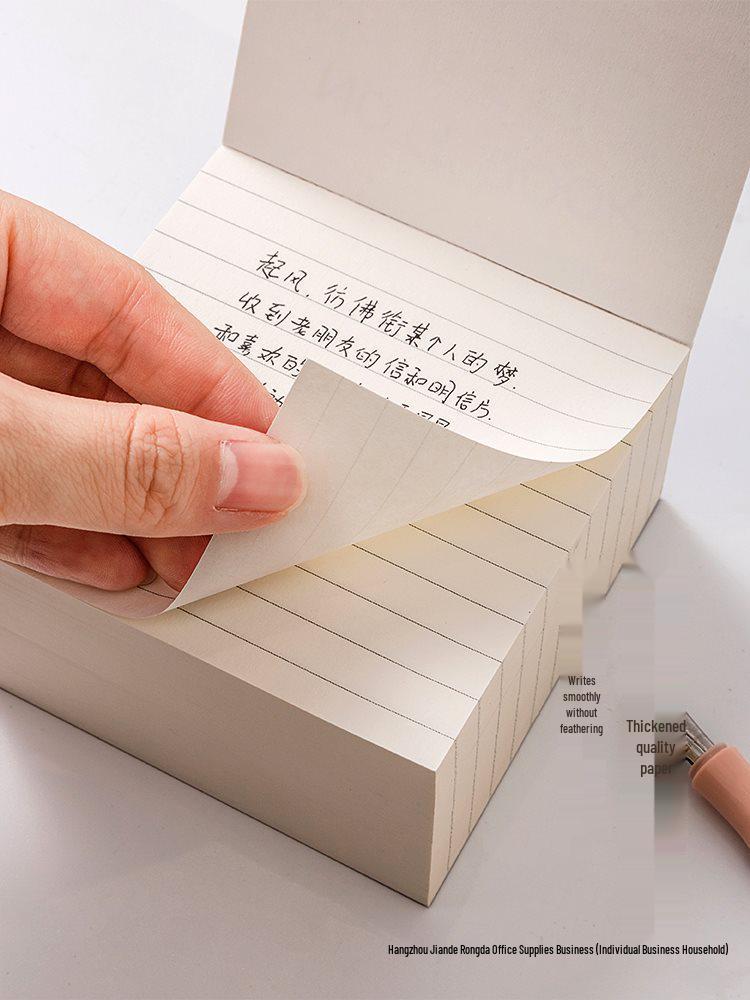 起风,彷彿衔某个人的梦.
收到老朋友的信和明信片.
和喜欢的
Writes
smoothly
without
feathering
Thickened
quality
paper
Hangzhou Jiande Rongda Office Supplies Business (Individual Business Household)